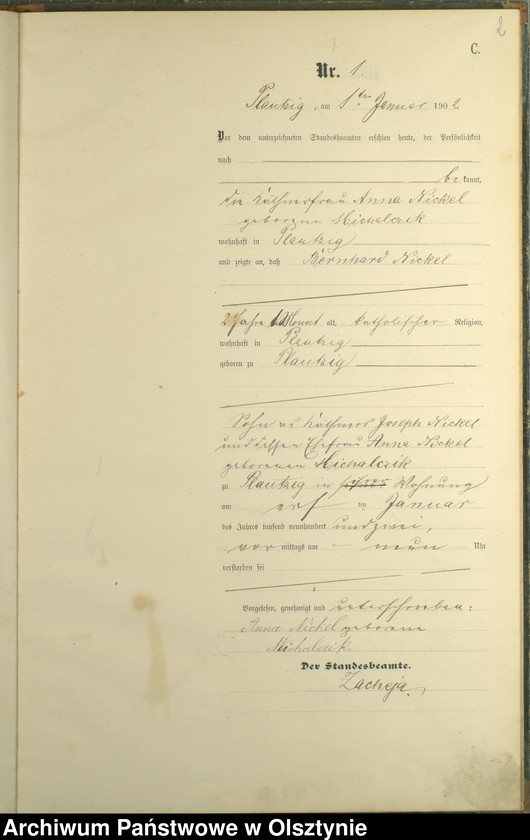 2
C.
Nr. 1.
Plautzig, am 1ten Januar 1902
Vor dem unterzeichneten Standesbeamten erschien heute, der Persönlichkeit
nach
be kannt,
die Käthnerfrau Anna Nickel
geborene Michalczik
wohnhaft in Plautzig
und zeigte an, daß Bernhard Nickel
2 Jahre Monat alt, katholischer Religion,
wohnhaft in Plautzig
geboren zu Plautzig
Sohn des Käthners Joseph Nickel
und dessen Ehefrau Anna Nickel
geborenen Michalczik
zu Plautzig in Wohnung
am ten Januar
des Jahres tausend neunhundert und zwei,
vor mittags um neun Uhr
verstorben sei
Vorgelesen, genehmigt und unterschrieben:
Anna Nickel geborene
Michalczik.
Der Standesbeamte.
Zacheja.
Archiwum Państwowe w Olsztynie